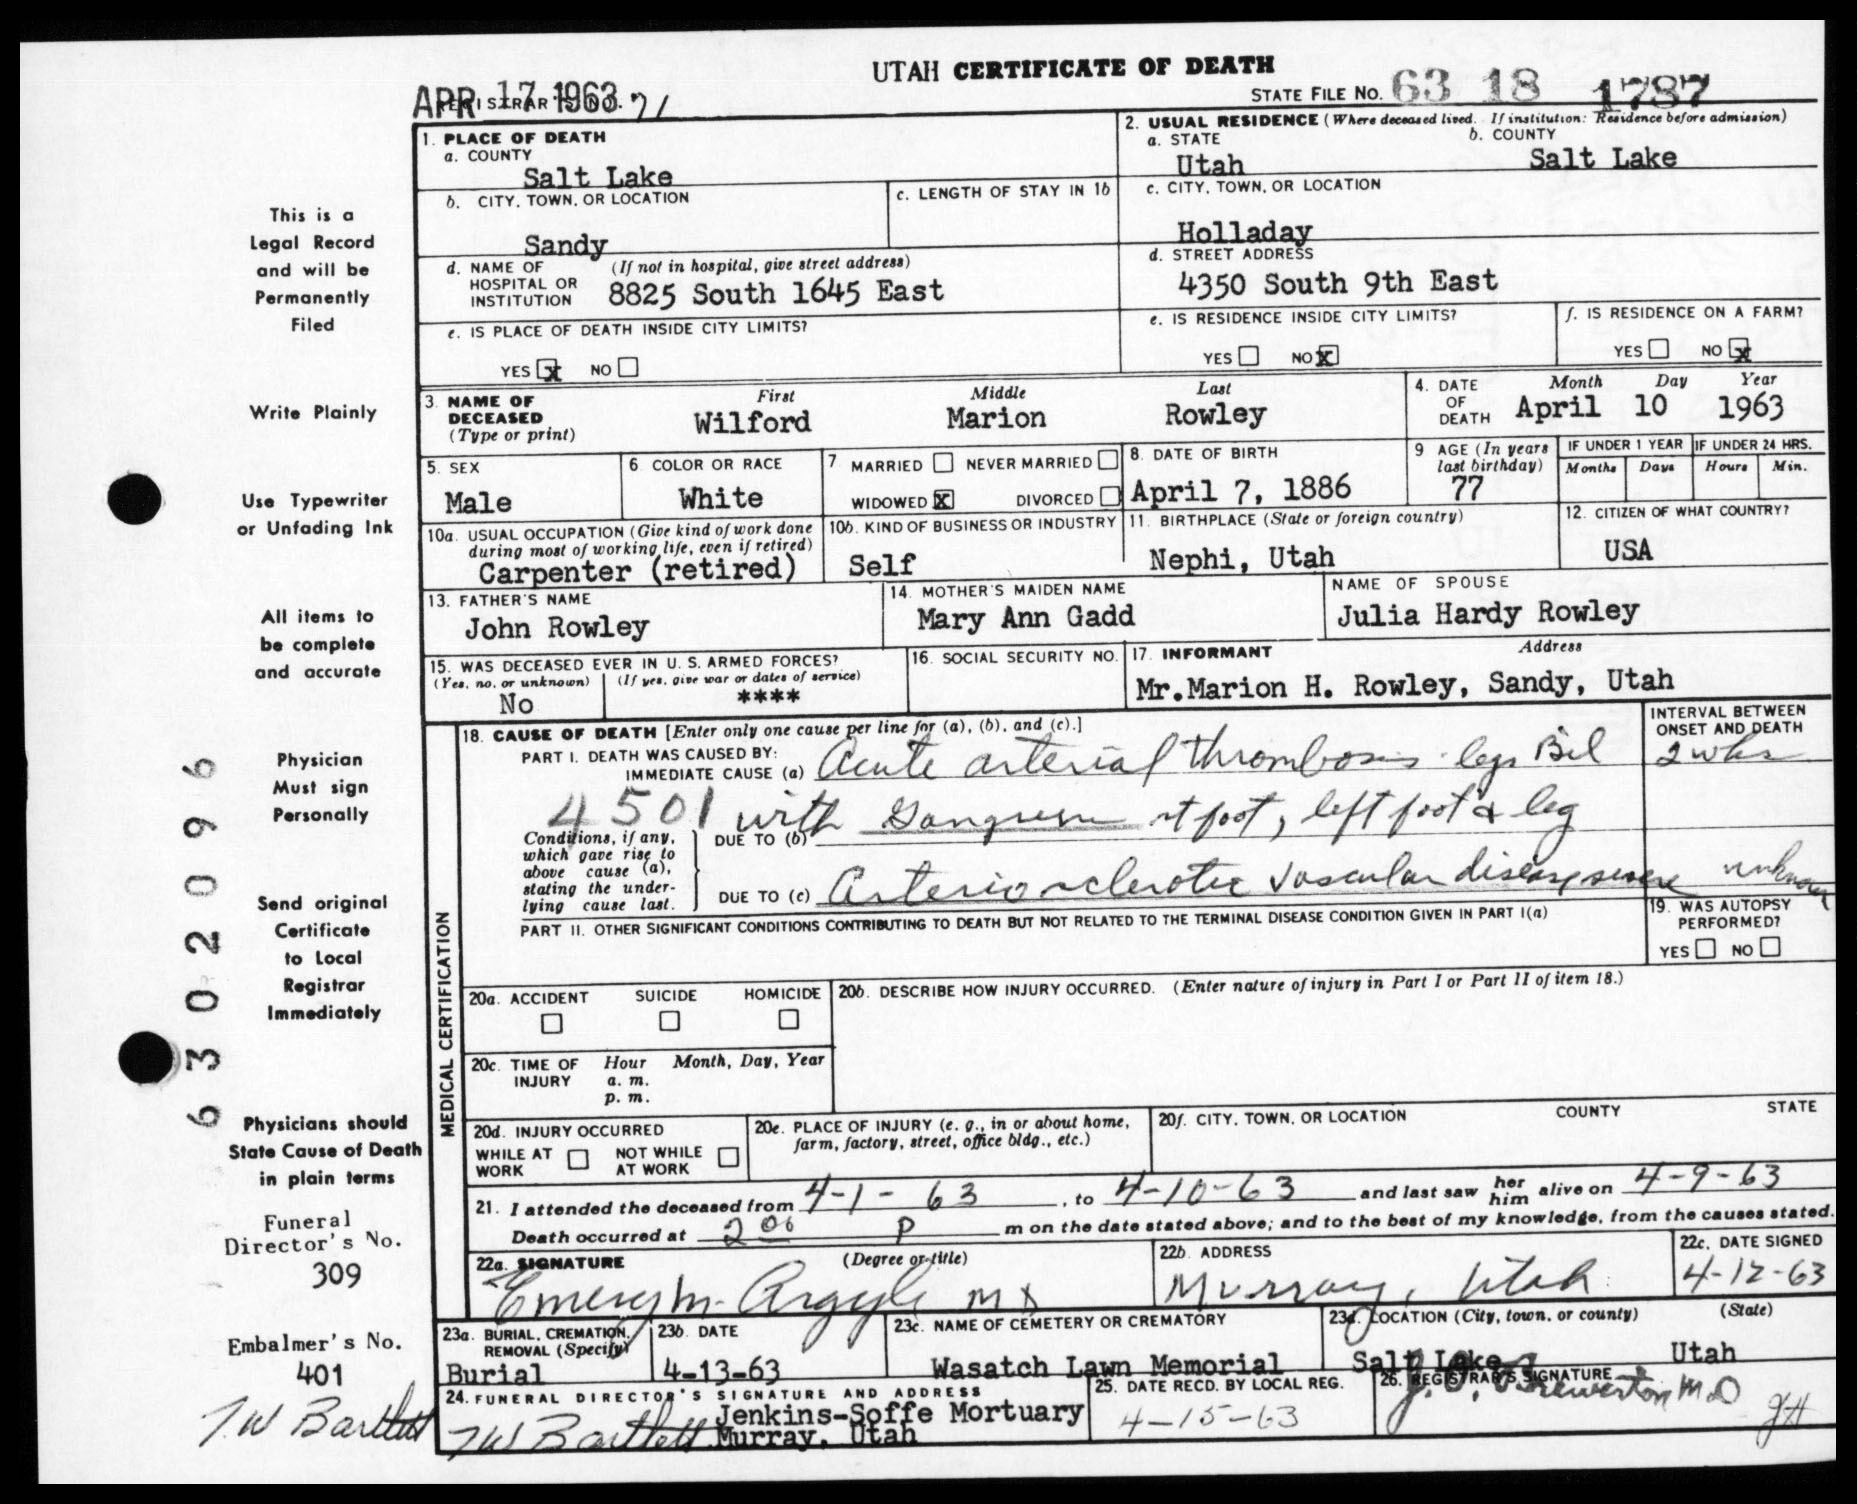 UTAH CERTIFICATE OF DEATH
APR 17 1963
REGISTRAR'S NO. 71
STATE FILE NO. 63 18 1787
1. PLACE OF DEATH
a. COUNTY
Salt Lake
2. USUAL RESIDENCE (Where deceased lived. If institution: Residence before admission)
a. STATE
Utah
b. COUNTY
Salt Lake
b. CITY, TOWN, OR LOCATION
Sandy
c. LENGTH OF STAY IN 1b
c. CITY, TOWN, OR LOCATION
Holladay
d. NAME OF HOSPITAL OR INSTITUTION
(If not in hospital, give street address)
8825 South 1645 East
d. STREET ADDRESS
4350 South 9th East
e. IS PLACE OF DEATH INSIDE CITY LIMITS?
YES x NO
e. IS RESIDENCE INSIDE CITY LIMITS?
YES NO X
f. IS RESIDENCE ON A FARM?
YES NO x
3. NAME OF DECEASED (Type or print)
First Middle Last
Wilford Marion Rowley
4. DATE OF DEATH
Month Day Year
April 10 1963
5. SEX
Male
6. COLOR OR RACE
White
7. MARRIED NEVER MARRIED
WIDOWED X DIVORCED
8. DATE OF BIRTH
April 7, 1886
9 AGE (In years last birthday)
77
IF UNDER 1 YEAR
Months Days
IF UNDER 24 HRS.
Hours Min.
10a. USUAL OCCUPATION (Give kind of work done during most of working life, even if retired)
Carpenter (retired)
10b. KIND OF BUSINESS OR INDUSTRY
Self
11. BIRTHPLACE (State or foreign country)
Nephi, Utah
12. CITIZEN OF WHAT COUNTRY?
USA
13. FATHER'S NAME
John Rowley
14. MOTHER'S MAIDEN NAME
Mary Ann Gadd
NAME OF SPOUSE
Julia Hardy Rowley
15. WAS DECEASED EVER IN U. S. ARMED FORCES?
(Yes, no, or unknown) (If yes, give war or dates of service)
No ****
16. SOCIAL SECURITY NO.
17. INFORMANT Address
Mr.Marion H. Rowley, Sandy, Utah
MEDICAL CERTIFICATION
18. CAUSE OF DEATH [Enter only one cause per line for (a), (b), and (c).]
INTERVAL BETWEEN ONSET AND DEATH
PART I. DEATH WAS CAUSED BY:
IMMEDIATE CAUSE (a) Acute arterial thrombosis legs Bil 2 wks
4501 with Gangrene rt foot, left foot & leg
Conditions, if any, which gave rise to above cause (a), stating the underlying cause last.
DUE TO (b)
DUE TO (c) Arteriosclerotic vascular disease severe unknown
PART II. OTHER SIGNIFICANT CONDITIONS CONTRIBUTING TO DEATH BUT NOT RELATED TO THE TERMINAL DISEASE CONDITION GIVEN IN PART I(a)
19. WAS AUTOPSY PERFORMED?
YES NO
20a. ACCIDENT SUICIDE HOMICIDE
20b. DESCRIBE HOW INJURY OCCURRED. (Enter nature of injury in Part I or Part II of item 18.)
20c. TIME OF INJURY
Hour Month, Day, Year
a. m.
p. m.
20d. INJURY OCCURRED
WHILE AT WORK NOT WHILE AT WORK
20e. PLACE OF INJURY (e. g., in or about home, farm, factory, street, office bldg., etc.)
20f. CITY, TOWN, OR LOCATION COUNTY STATE
21. I attended the deceased from 4-1-63, to 4-10-63 and last saw her him alive on 4-9-63
Death occurred at 2 00 P m on the date stated above; and to the best of my knowledge, from the causes stated.
22a. SIGNATURE (Degree or title)
Emery M. Argyle MD
22b. ADDRESS
Murray, Utah
22c. DATE SIGNED
4-12-63
23a. BURIAL, CREMATION, REMOVAL (Specify)
Burial
23b. DATE
4-13-63
23c. NAME OF CEMETERY OR CREMATORY
Wasatch Lawn Memorial
23d. LOCATION (City, town, or county) (State)
Salt Lake Utah
24. FUNERAL DIRECTOR'S SIGNATURE AND ADDRESS
TW Bartlett Jenkins-Soffe Mortuary
Murray, Utah
25. DATE RECD. BY LOCAL REG.
4-15-63
26. REGISTRAR'S SIGNATURE
J. O. Brewerton M.D
JH
This is a
Legal Record
and will be
Permanently
Filed
Write Plainly
Use Typewriter
or Unfading Ink
All items to
be complete
and accurate
Physician
Must sign
Personally
Send original
Certificate
to Local
Registrar
Immediately
Physicians should
State Cause of Death
in plain terms
Funeral
Director's No.
309
Embalmer's No.
401
T.W Bartlett
6302096